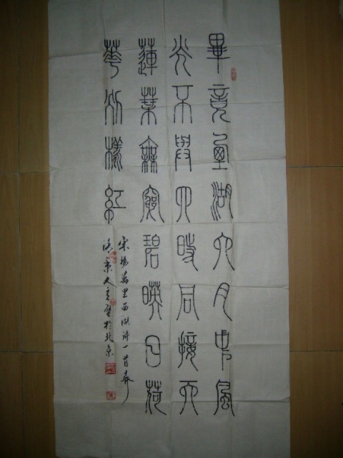 畢竟西湖六月中風
光不與四時同接天
蓮葉無窮碧暎日荷
華別樣紅
宋楊萬里西湖詩一首
於北京